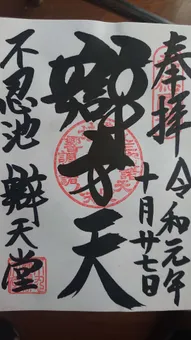 奉拝
令和元年
十月廿七日
辯才天
不忍池
辯天堂